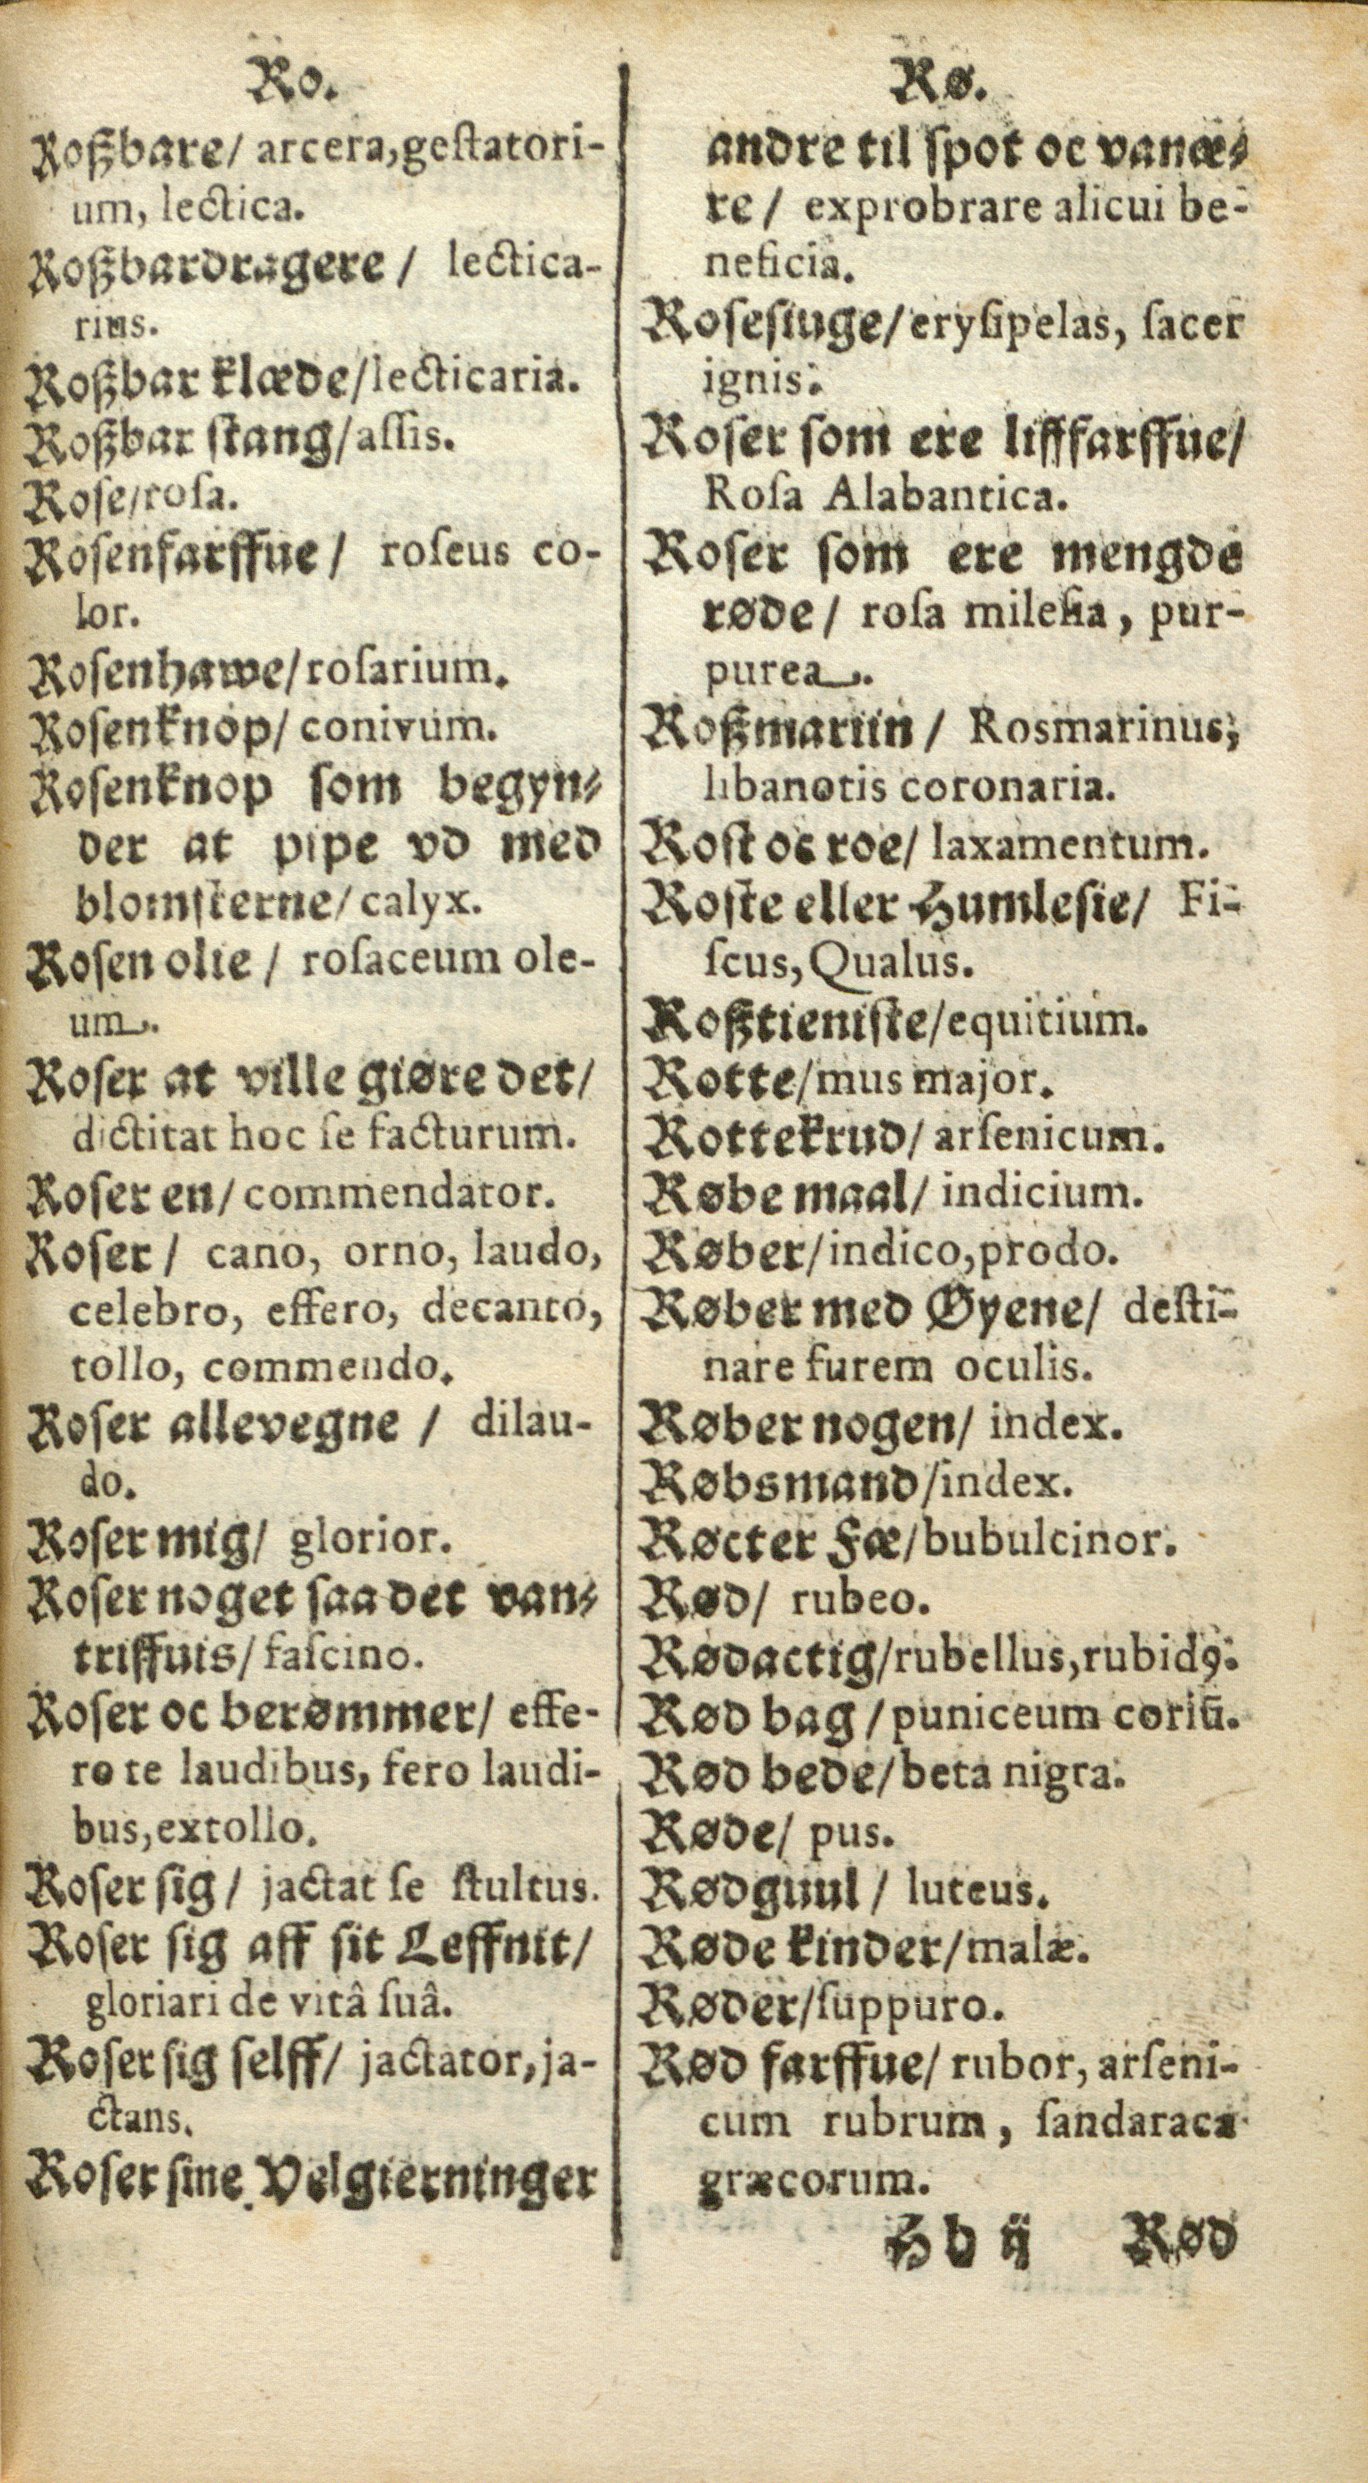 Ro.
Roßbare/ arcera,geſtatori-
um, lectica.
Roßbardragere / lectica-
rius.
Roßbar klæde/lecticaria.
Roßbar ſtang/aſſis.
Roſe/roſa.
Roſenfarffue / roſeus co-
lor.
Roſenhawe/roſarium.
Roſenknop/ conivum.
Roſenknop ſom begyn⸗
der at pipe vd med
blomſterne/ calyx.
Roſen olie / roſaceum ole-
um.
Roſer at ville giøre det/
dictitat hoc ſe facturum.
Roſer en/ commendator.
Roſer / cano, orno, laudo,
celebro, effero, decanto,
tollo, commendo.
Roſer allevegne / dilau-
do.
Roſer mig/ glorior.
Roſer noget ſaa det van⸗
triffuis/ faſcino.
Roſer oc berømmer/ effe-
ro te laudibus, fero laudi-
bus,extollo.
Roſer ſig / jactat ſe ſtultus.
Roſer ſig aff ſit Leffnit/
gloriari de vitâ ſuâ.
Roſer ſig ſelff/ jactator,ja-
ctans.
Roſer ſine Velgierninger
Rø.
andre til ſpot oc vanæ⸗
re / exprobrare alicui be-
neficia.
Roſeſiuge/eryſipelas, ſacer
ignis.
Roſer ſom ere lifffarffue/
Roſa Alabantica.
Roſer ſom ere mengde
røde / roſa mileſia, pur-
purea.
Roßmariin / Rosmarinus,
libanotis coronaria.
Roſt oc roe/ laxamentum.
Roſte eller Humleſie/ Fi-
ſcus, Qualus.
Roßtieniſte/equitium.
Rotte/mus major.
Rottekrud/ arſenicum.
Røbe maal/ indicium.
Røber/indico,prodo.
Røber med Øyene/ deſti-
nare furem oculis.
Røber nogen/ index.
Røbsmand/index.
Røcter Fæ/bubulcinor.
Rød/ rubeo.
Rødactig/rubellus,rubidꝰ.
Rød bag / puniceum coriũ.
Rød bede/beta nigra.
Røde/ pus.
Rødguul / luteus.
Røde kinder/malæ.
Røder/ſuppuro.
Rød farffue/ rubor, arſeni-
cum rubrum, ſandaraca
græcorum.
Hh ij Rød